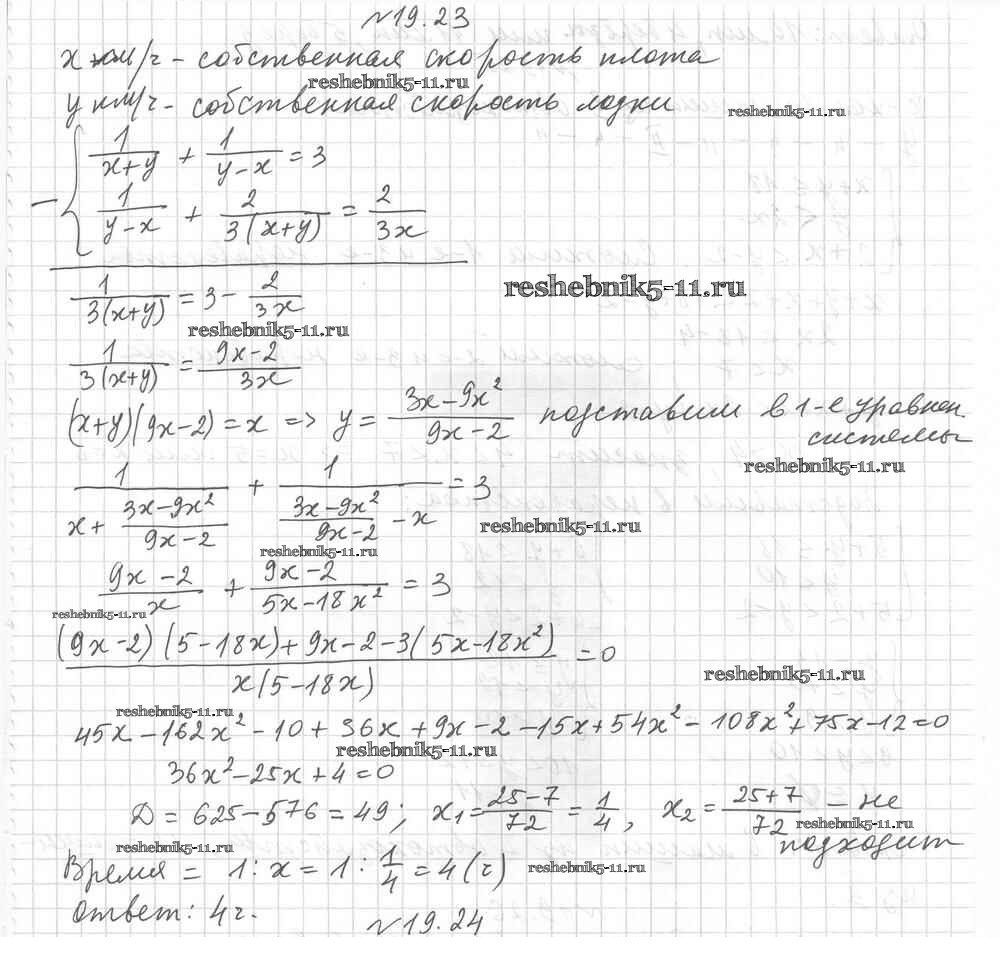 №19.23
x км/ч - собственная скорость плота
reshebnik5-11.ru
y км/ч - собственная скорость лодки
reshebnik5-11.ru
1/(x+y) + 1/(y-x) = 3
1/(y-x) + 2/(3(x+y)) = 2/(3x)
1/(3(x+y)) = 3 - 2/(3x)
reshebnik5-11.ru
reshebnik5-11.ru
1/(3(x+y)) = (9x-2)/(3x)
(x+y)(9x-2) = x => y = (3x-9x²)/(9x-2) подставим в 1-е уравнен.
системы
reshebnik5-11.ru
1/(x + (3x-9x²)/(9x-2)) + 1/((3x-9x²)/(9x-2) - x) = 3
reshebnik5-11.ru
reshebnik5-11.ru
(9x-2)/x + (9x-2)/(5x-18x²) = 3
reshebnik5-11.ru
((9x-2)(5-18x)+9x-2-3(5x-18x²))/(x(5-18x)) = 0
reshebnik5-11.ru
reshebnik5-11.ru
45x-162x²-10+36x+9x-2-15x+54x²-108x²+75x-12=0
reshebnik5-11.ru
36x²-25x+4=0
Д = 625-576 = 49; x₁ = (25-7)/72 = 1/4, x₂ = (25+7)/72 - не
подходит
reshebnik5-11.ru
reshebnik5-11.ru
Время = 1 : x = 1 : 1/4 = 4 (ч)
reshebnik5-11.ru
Ответ: 4ч.
№19.24